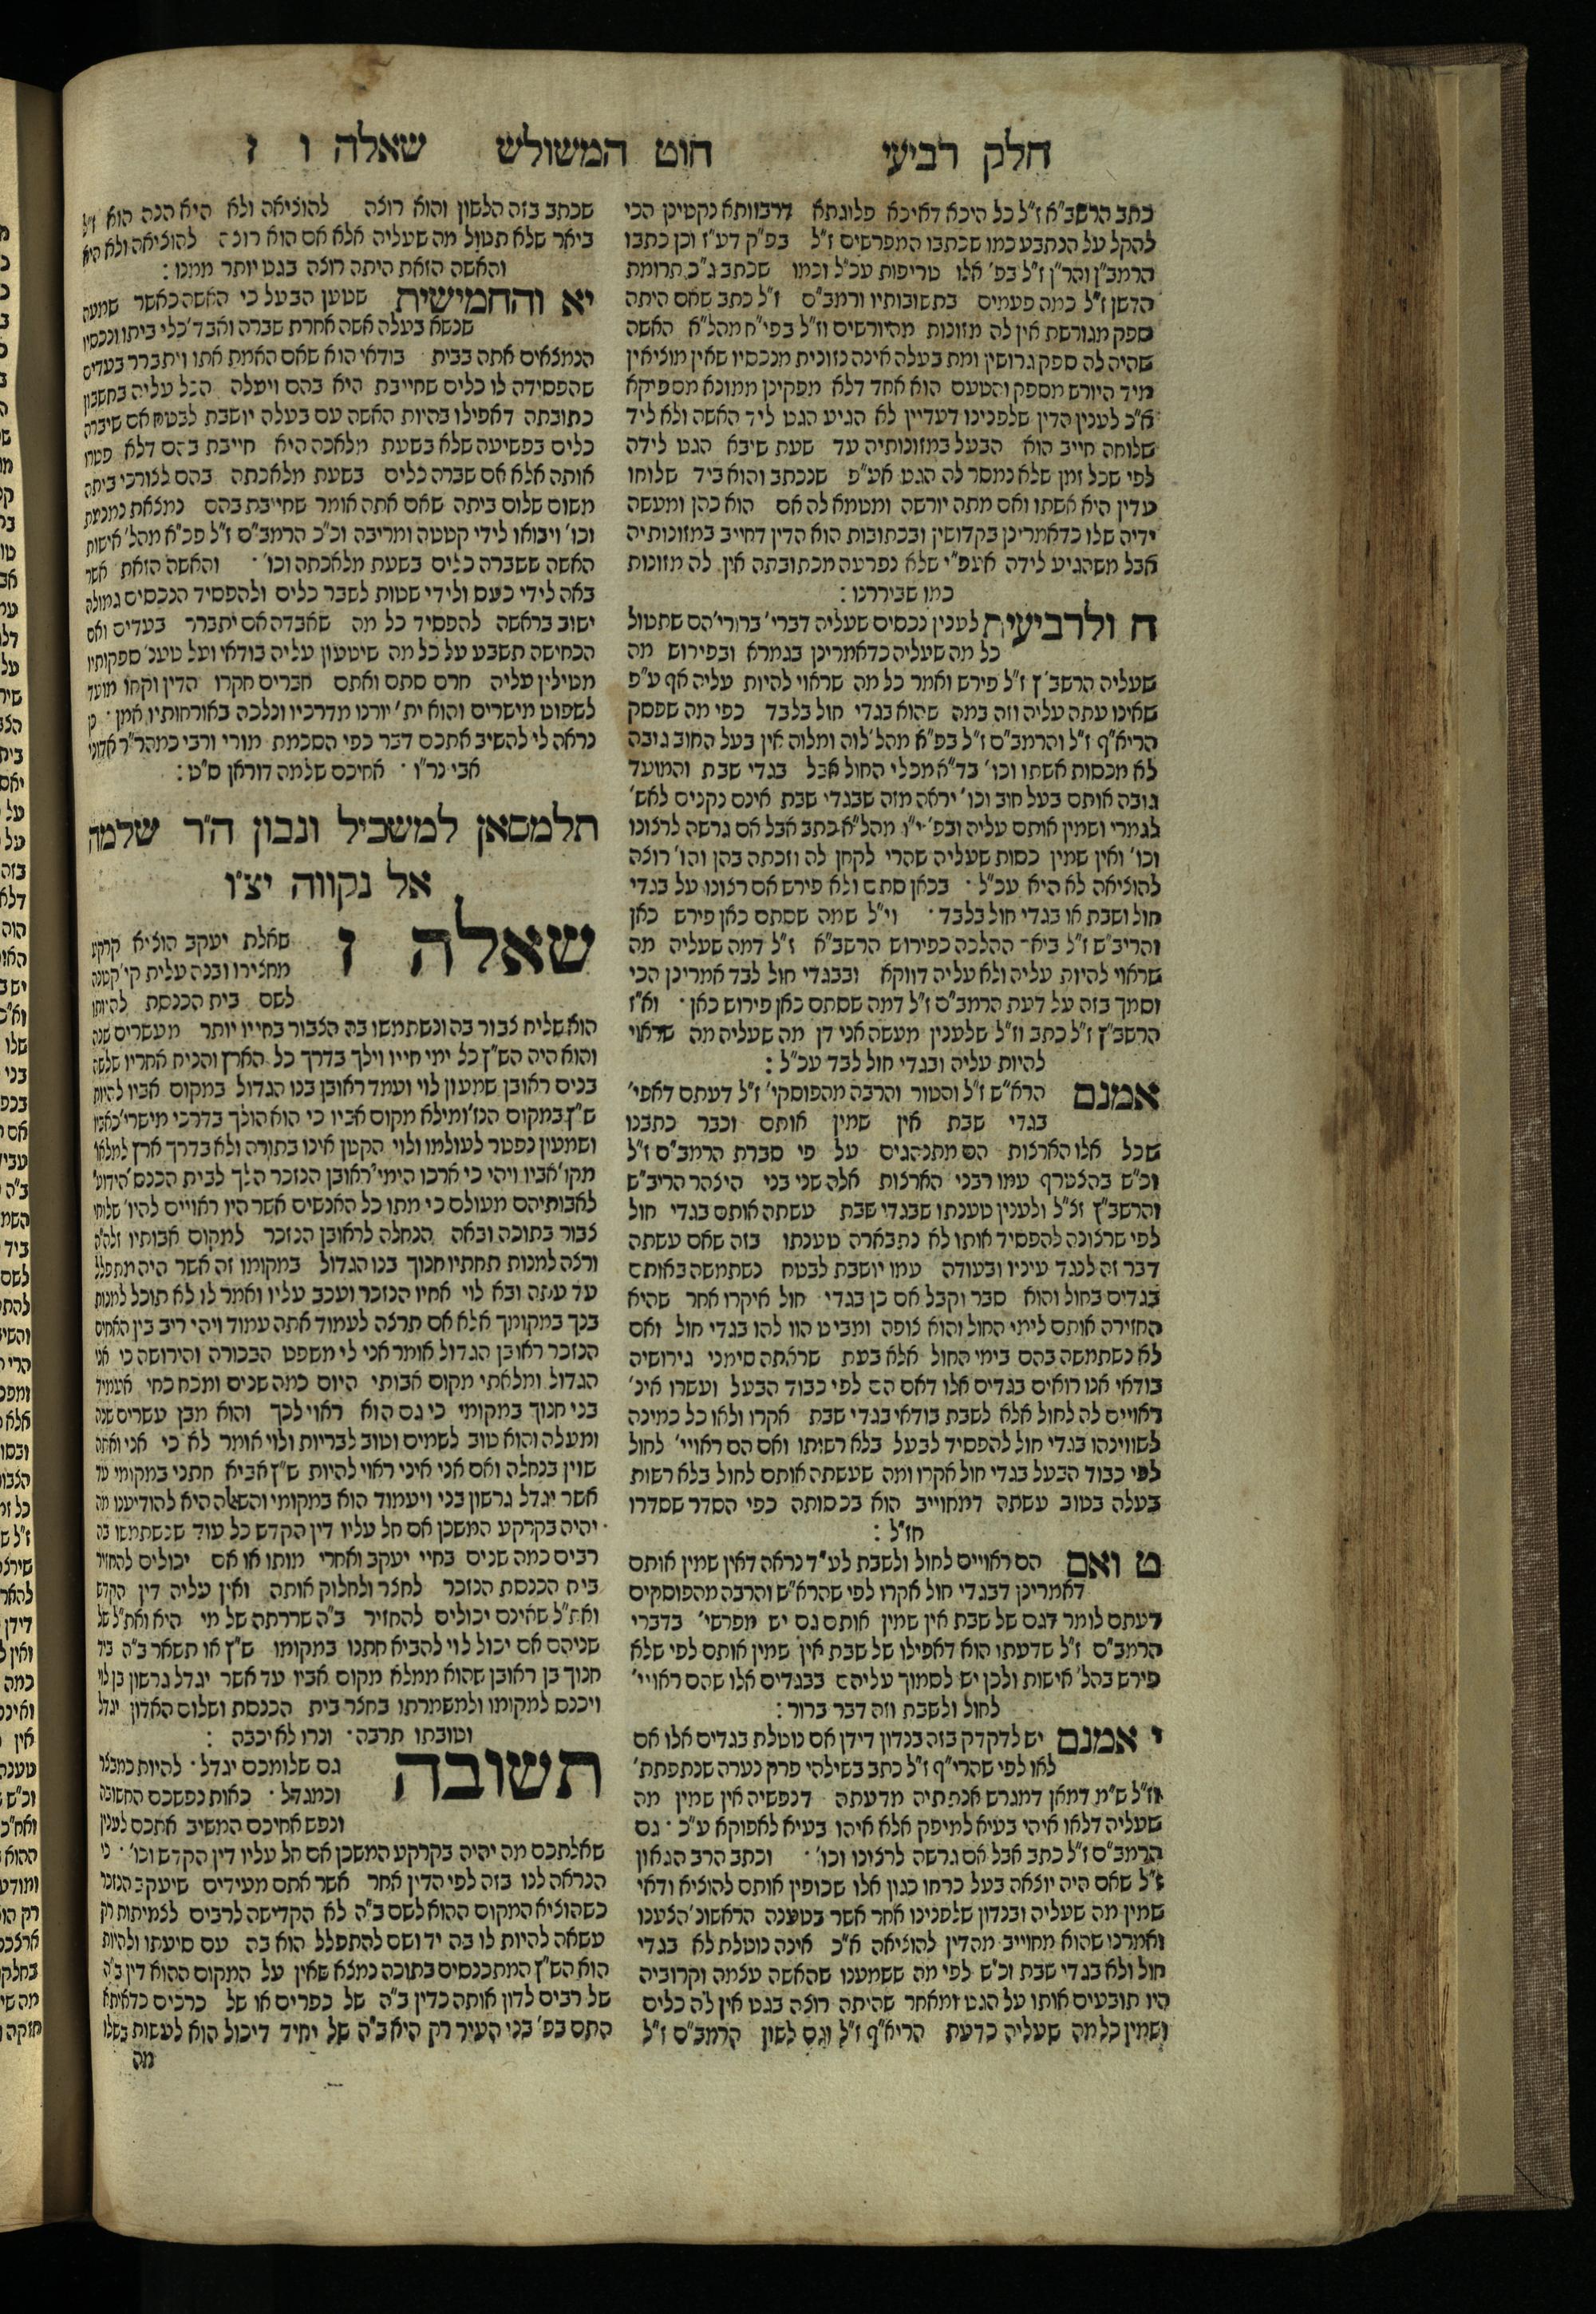 חלק רביעי חוט המשולש שאלה ו ז
כתב הרשב"א ז"ל כל היכא דאיכא פלוגתא דרבוותא נקטינן הכי
להקל על הנתבע כמו שכתבו המפרשים ז"ל בפ"ק דע"ז וכן כתבו
הרמב"ן והר"ן ז"ל בפ' אלו טריפות עכ"ל וכמו שכתב ג"כ תרומת
הדשן ז"ל כמה פעמים בתשובותיו ורמב"ם ז"ל כתב שאם היתה
ספק מגורשת אין לה מזונות מהיורשים וז"ל בפי"ח מהל"א האשה
שהיה לה ספק גרושין ומת בעלה אינה נזונית מנכסיו שאין מוציאין
מיד היורש מספק והטעם הוא אחד דלא מפקינן ממונא מספיקא
א"כ לענין הדין שלפנינו דעדיין לא הגיע הגט ליד האשה ולא ליד
שלוחה חייב הוא הבעל במזונותיה עד שעת שיבא הגט לידה
לפי שכל זמן שלא נמסר לה הגט אע"פ שנכתב והוא ביד שלוחו
עדין היא אשתו ואם מתה יורשה ומטמא לה אם הוא כהן ומעשה
ידיה שלו כדאמרינן בקדושין ובכתובות הוא הדין דחייב במזונותיה
אבל משהגיע לידה אעפ"י שלא נפרעה מכתובתה אין לה מזונות
כמו שביררנו :
ח ולרביעית לענין נכסים שעליה דברי' ברורי' הם שתטול
כל מה שעליה כדאמרינן בגמרא ובפירוש מה
שעליה הרשב"ץ ז"ל פירש ואמר כל מה שראוי להיות עליה אף ע"פ
שאינו עתה עליה וזה במה שהוא בגדי חול בלבד כפי מה שפסק
הריא"ף ז"ל והרמב"ם ז"ל בפ"א מהל' לוה ומלוה אין בעל החוב גובה
לא מכסות אשתו וכו' בד"א מכלי החול אבל בגדי שבת והמועד
גובה אותם בעל חוב וכו' יראה מזה שבגדי שבת אינם נקנים לאש'
לגמרי ושמין אותם עליה ובפ' י"ו מהל"א כתב אבל אם גרשה לרצונו
וכו' ואין שמין כסות שעליה שהרי לקחן לה וזכתה בהן והו' רוצה
להוציאה לא היא עכ"ל · בכאן סתם ולא פירש אם רצונו על בגדי
חול ושבת או בגדי חול בלבד · וי"ל שמה שסתם כאן פירש כאן
והריב"ש ז"ל ביא' ההלכה כפירוש הרשב"א ז"ל דמה שעליה מה
שראוי להיות עליה ולא עליה דווקא ובבגדי חול לבד אמרינן הכי
וסמך בזה על דעת הרמב"ם ז"ל דמה שסתם כאן פירוש כאן · וא"ז
הרשב"ץ ז"ל כתב וז"ל שלענין מעשה אני דן מה שעליה מה שראוי
להיות עליה ובגדי חול לבד עכ"ל :
אמנם הרא"ש ז"ל והטור והרבה מהפוסקי' ז"ל דעתם דאפי'
בגדי שבת אין שמין אותם וכבר כתבנו
שכל אלו הארצות הם מתנהגים על פי סברת הרמב"ם ז"ל
וכ"ש בהצטרף עמו רבני הארצות אלה שני בני היצהר הריב"ש
והרשב"ץ זצ"ל ולענין טענתו שבגדי שבת עשתה אותם בגדי חול
לפי שרצונה להפסיד אותו לא נתבארה טענתו בזה שאם עשתה
דבר זה לנגד עיניו ובעודה עמו יושבת לבטח נשתמשה באותם
בגדים בחול והוא סבר וקבל אם כן בגדי חול איקרו אחר שהיא
החזירה אותם לימי החול והוא צופה ומביט הוו להו בגדי חול ואם
לא נשתמשה בהם בימי החול אלא בעת שראתה סימני גירושיה
בודאי אנו רואים בגדים אלו דאם הם לפי כבוד הבעל ועשרו אינ'
ראויים לה לחול אלא לשבת בודאי בגדי שבת אקרו ולאו כל כמינה
לשווינהו בגדי חול להפסיד לבעל בלא רשותו ואם הם ראויי' לחול
לפי כבוד הבעל בגדי חול אקרו ומה שעשתה אותם לחול בלא רשות
בעלה בטוב עשתה דמחוייב הוא בכסותה כפי הסדר שסדרו
חז"ל :
ט ואם הם ראויים לחול ולשבת לע"ד נראה דאין שמין אותם
דאמרינן דבגדי חול אקרו לפי שהרא"ש והרבה מהפוסקים
דעתם לומר דגם של שבת אין שמין אותם גם יש מפרשי' בדברי
הרמב"ם ז"ל שדעתו הוא דאפילו של שבת אין שמין אותם לפי שלא
פירש בהל' אישות ולכן יש לסמוך עליהם בבגדים אלו שהם ראויי'
לחול ולשבת וזה דבר ברור :
י אמנם יש לדקדק בזה בנדון דידן אם נוטלת בגדים אלו אם
לאו לפי שהרי"ף ז"ל כתב בשילהי פרק נערה שנתפתת'
וז"ל ש"מ דמאן דמגרש אנתתיה מדעתה דנפשיה אין שמין מה
שעליה דלאו איהי בעיא למיפק אלא איהו בעיא לאפוקא ע"כ · גם
הרמב"ם ז"ל כתב אבל אם גרשה לרצונו וכו' · וכתב הרב הגאון
ז"ל שאם היה יוצאה בעל כרחו כגון אלו שכופין אותם להוציא ודאי
שמין מה שעליה ובנדון שלפנינו אחר אשר בטענה הראשונ' הצענו
ואמרנו שהוא מחוייב מהדין להוציאה א"כ אינה נוטלת לא בגדי
חול ולא בגדי שבת וכ"ש לפי מה ששמענו שהאשה עצמה וקרוביה
היו תובעים אותו על הגט ומאחר שהיתה רוצה בגט אין לה כלים
ושמין כל מה שעליה כדעת הריא"ף ז"ל וגם לשון הרמב"ם ז"ל
שכתב בזה הלשון והוא רוצה להוציאה ולא היא הנה הוא ז"ל
ביאר שלא תטול מה שעליה אלא אם הוא רוצה להוציאה ולא היא
והאשה הזאת היתה רוצה בגט יותר ממנו :
יא והחמישית שטען הבעל כי האשה כאשר שמעה
שנשא בעלה אשה אחרת שברה ואבד' כלי ביתו ונכסיו
הנמצאים אתה בבית בודאי הוא שאם האמת אתו ויתברר בעדים
שהפסידה לו כלים שחייבת היא בהם ויעלה הכל עליה בחשבון
כתובתה דאפילו בהיות האשה עם בעלה יושבת לבטח אם שיברה
כלים בפשיעה שלא בשעת מלאכה היא חייבת בהם דלא פטרו
אותה אלא אם שברה כלים בשעת מלאכתה בהם לצורכי ביתה
משום שלום ביתה שאם אתה אומר שחייבת בהם נמצאת נמנעת
וכו' ויבואו לידי קטטה ומריבה וכ"כ הרמב"ם ז"ל פכ"א מהל' אישות
האשה ששברה כלים בשעת מלאכתה וכו' · והאשה הזאת אשר
באה לידי כעס ולידי שטות לשבר כלים ולהפסיד הנכסים גמולה
ישוב בראשה להפסיד כל מה שאבדה אם יתברר בעדים ואם
הכחישה תשבע על כל מה שיטעון עליה בודאי ועל טענ' ספקותיו
מטילין עליה חרם סתם ואתם חברים חקרו הדין וקחו מועד
לשפוט מישרים והוא ית' יורנו מדרכיו ונלכה באורחותיו אמן · כן
נראה לי להשיב אתכם דבר כפי הסכמת מורי ורבי כמהר"ר אדוני
אבי נר"ו · אחיכם שלמה דוראן ס"ט :
תלמסאן למשכיל ונבון ה"ר שלמה
אל נקווה יצ"ו
שאלה ז שאלת יעקב הוציא קרקע
מחצירו ובנה עלית קי' קטנה
לשם בית הכנסת להיותו
הוא שליח צבור בה ונשתמשו בה הצבור בחייו יותר מעשרים שנה
והוא היה הש"ץ כל ימי חייו וילך בדרך כל הארץ והניח אחריו שלשה
בנים ראובן שמעון לוי ועמד ראובן בנו הגדול במקום אביו להיות
ש"ץ במקום הנז' ומילא מקום אביו כי הוא הולך בדרכי מישרי' כאביו
ושמעון נפטר לעולמו ולוי הקטן אינו בתורה ולא בדרך ארץ למלאו'
מקו' אביו ויהי כי ארכו הימי' ראובן הנזכר הלך לבית הכנס' הידוע'
לאבותיהם מעולם כי מתו כל האנשים אשר היו ראויים להיו' שלוחי
צבור בתוכה ובאה הנחלה לראובן הנזכר למקום אבותיו זלה"ה
ורצה למנות תחתיו חנוך בנו הגדול במקומו זה אשר היה מתפלל
עד עתה ובא לוי אחיו הנזכר ועכב עליו ואמר לו לא תוכל למנות
בנך במקומך אלא אם תרצה לעמוד אתה עמוד ויהי ריב בין האחים
הנזכר ראובן הגדול אומר אני לי משפט הבכורה והירושה כי אני
הגדול ומלאתי מקום אבותי היום כמה שנים ומכח כחי אעמיד
בני חנוך במקומי כי גם הוא ראוי לכך והוא מבן עשרים שנה
ומעלה והוא טוב לשמים וטוב לבריות ולוי אומר לא כי אני ואתה
שוין בנחלה ואם אני איני ראוי להיות ש"ץ אביא חתני במקומי עד
אשר יגדל גרשון בני ויעמוד הוא במקומי והשאלה היא להודיענו מה
יהיה בקרקע המשכן אם חל עליו דין הקדש כל עוד שנשתמשו בה
רבים כמה שנים בחיי יעקב ואחרי מותו או אם יכולים להחזיר
בית הכנסת הנזכר לחצר ולחלוק אותה ואין עליה דין הקדש
ואת"ל שאינם יכולים להחזיר ב"ה שררתה של מי היא ואת"ל של
שניהם אם יכול לוי להביא חתנו במקומו ש"ץ או תשאר ב"ה ביד
חנוך בן ראובן שהוא ממלא מקום אביו עד אשר יגדל גרשון בן לוי
ויכנס למקומו ולמשמרתו בחצר בית הכנסת ושלום האדון יגדל
וטובתו תרבה · ונרו לא יכבה :
תשובה גם שלומכם יגדל · להיות כמבצר
וכמגדל · כאות נפשכם החשובה
ונפש אחיכם המשיב אתכם לענין
שאלתכם מה יהיה בקרקע המשכן אם חל עליו דין הקדש וכו' · כי
הנראה לנו בזה לפי הדין אחר אשר אתם מעידים שיעקב הנזכר
כשהוציא המקום ההוא לשם ב"ה לא הקדישה לרבים לצמיתות רק
עשאה להיות לו בה יד ושם להתפלל הוא בה עם סיעתו ולהיות
הוא הש"ץ המתכנסים בתוכה נמצא שאין על המקום ההוא דין ב"ה
של רבים לדון אותה כדין ב"ה של כפרים או של כרכים כדאיתא
התם בפ' בני העיר רק היא ב"ה של יחיד דיכול הוא לעשות בשלו
מה